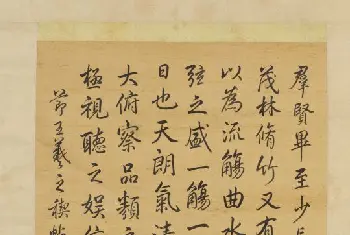 羣賢畢至少長
茂林脩竹又有
以為流觴曲水
弦之盛一觴一
日也天朗氣清
大俯察品類之
極視聽之娱信
節王羲之禊帖